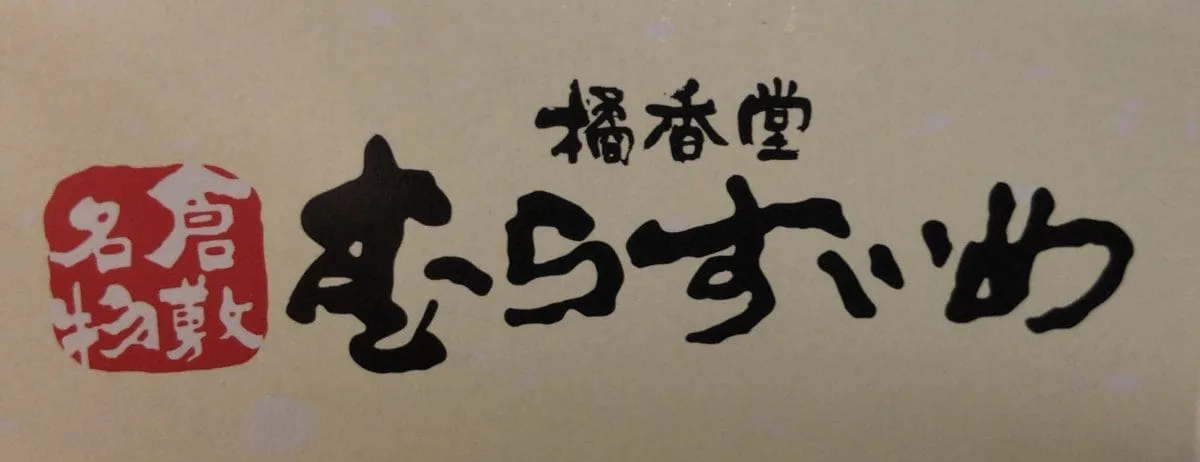 橘香堂
むらすゞめ
倉敷
名物